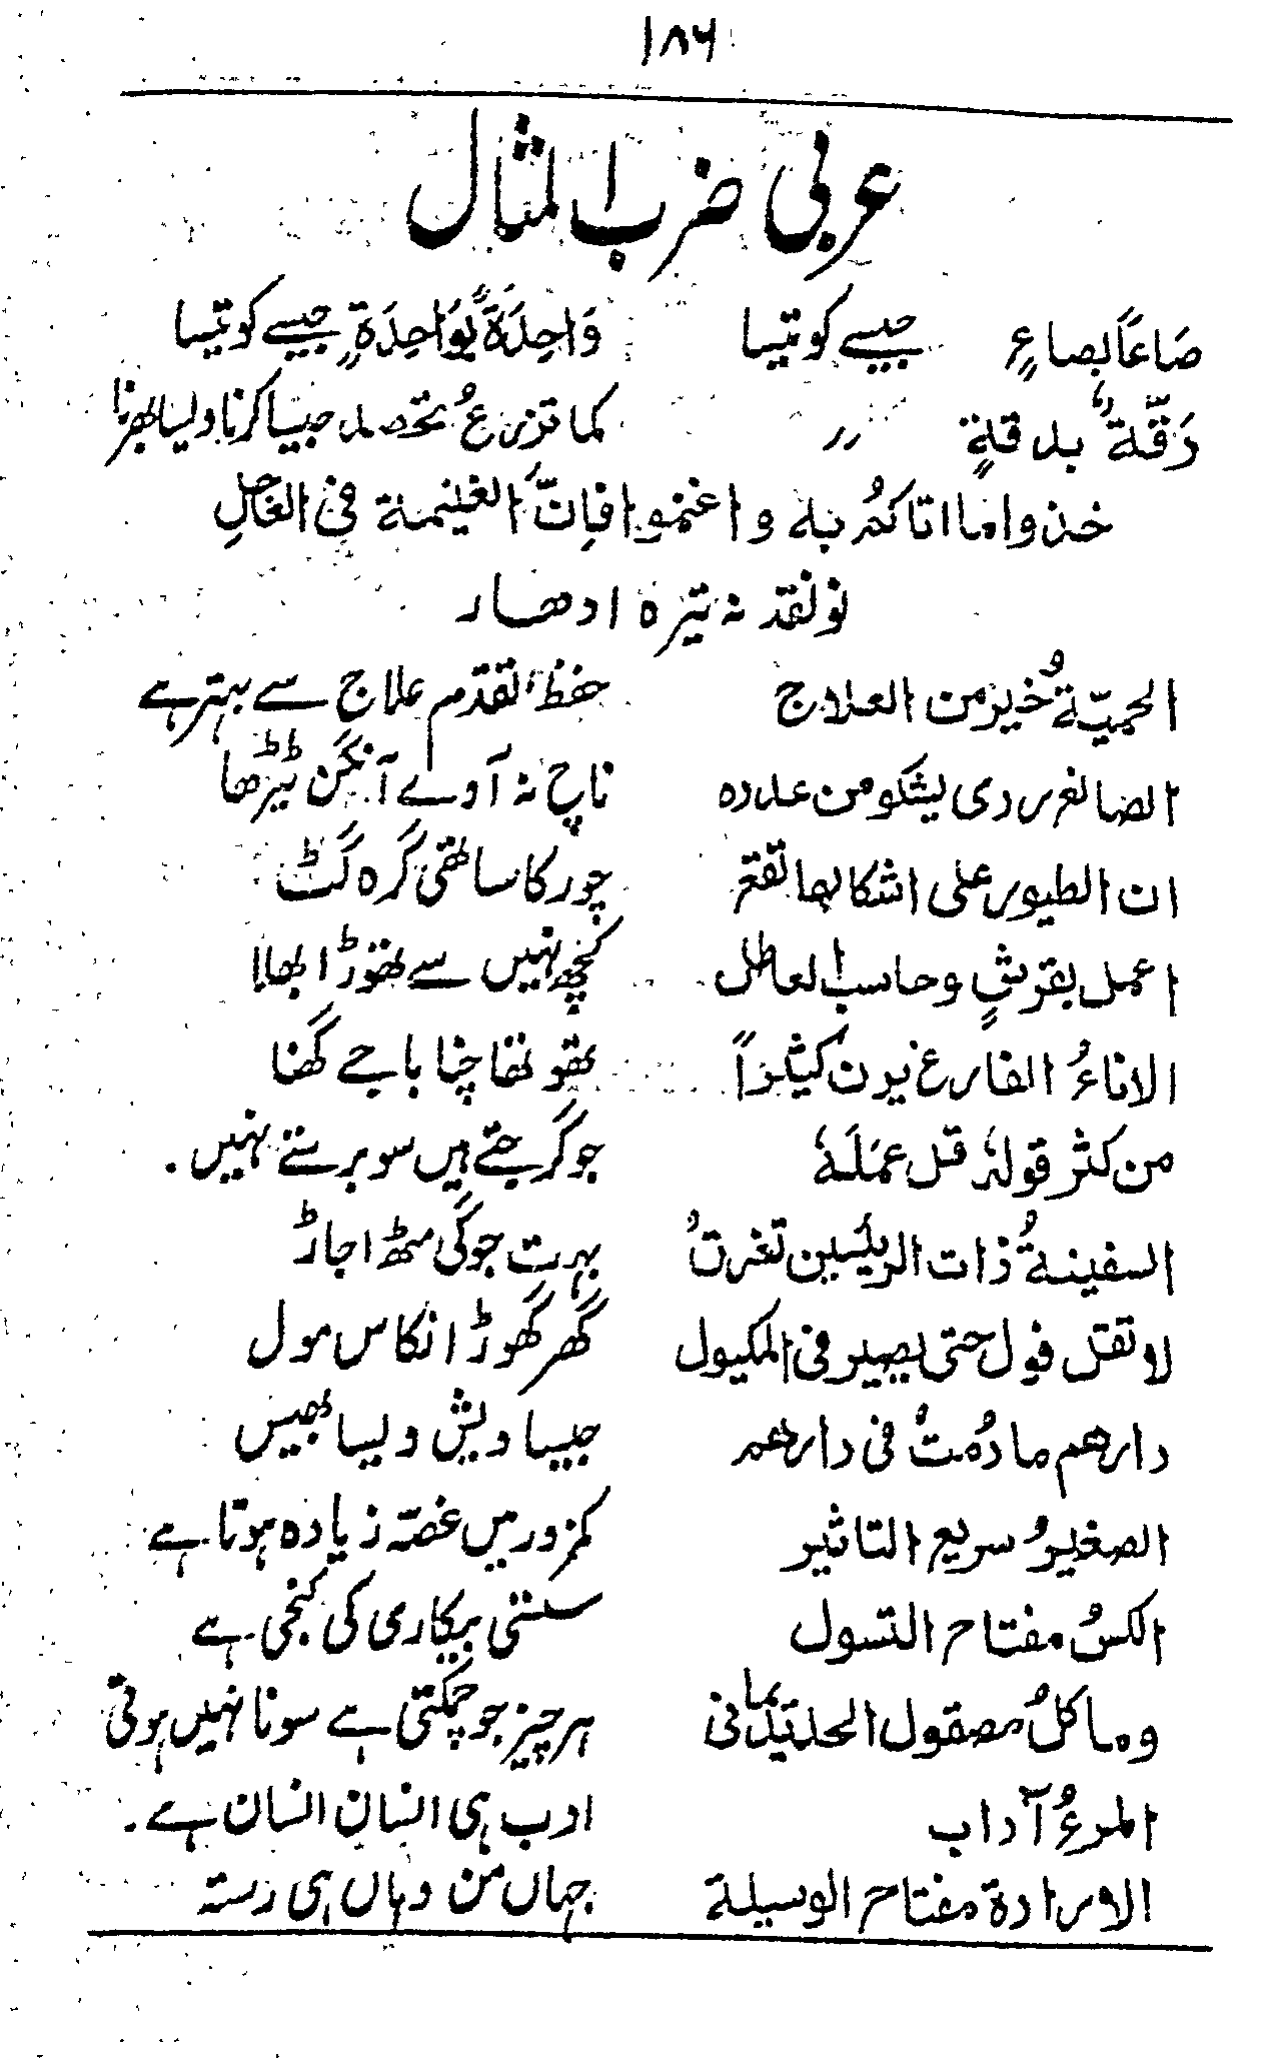 ۱۸۶
عربی ضرب المثال
صَاعَاً بصاعٍ جیسے کو تیسا وَاحِدَةً بِوَاحِدَةٍ جیسے کو تیسا
دَقّة بدقةٍ 〃 کما تزرعُ تحصد جیسا کرنا ویسا بھرنا
خذوا ما اتاکمُ به واغنموا فاِنّ الغنیمة فی العَاجِلِ
نو نقد نہ تیرہ ادھار
الحمیّةُ خیر من العلاج حفظ تقدم علاج سے بہتر ہے
الصانع ردی یشکو من عدده ناچ نہ آوے آنگن ٹیڑھا
ان الطیور علی اشکالها تقع چور کا ساتھی گرہ کٹ
اعمل بقرشٍ وحاسب العاطل کچھ نہیں سے تھوڑا بھلا
الاناءُ الفارغ یرن کثیراً تھوتھا چنا باجے گھنا
من کثر قولهٗ قل عمَلَهٗ جو گرجتے ہیں سو برستے نہیں۔
السفینةُ ذات الریئسین تغرقُ بہت جوگی مٹھ اجاڑ
لا تقل فول حتی یصیر فی المکیول گھر گھوڑا نکاس مول
دارهم ما دُمتُ فی دارهم جیسا دیش ویسا بھیس
الصغیرُ سریع التاثیر کمزور میں غصّہ زیادہ ہوتا ہے
الکسلُ مفتاح التسول سستی بیکاری کی کنجی ہے
وما کلُ مصقول الحدید یمانی ہر چیز جو چمکتی ہے سونا نہیں ہوتی
المرءُ آداب ادب ہی انسان انسان ہے۔
الارادة مفتاح الوسیلة جہاں من وہاں ہی رستہ